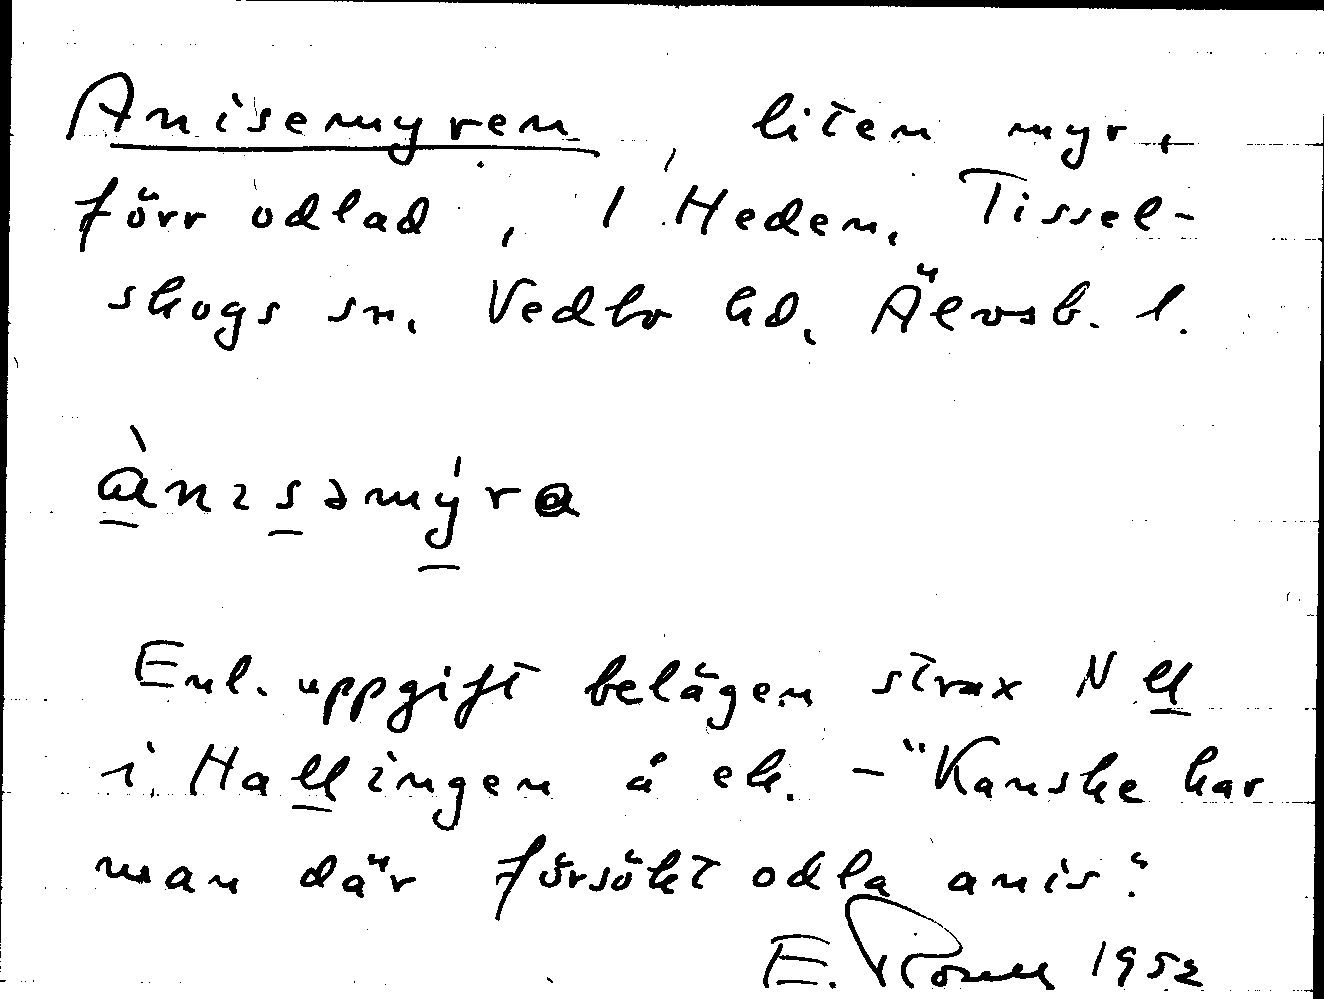 Anisemyren, liten myr,
förr odlad, i Heden, Tissel-
skogs sn, Vedbo hd, Älvsb. l.
ànɩsəmýra
Enl. uppgift belägen strax N ll
i Hallingen å ek. - "Kanske har
man där försökt odla anis".
E. 1952